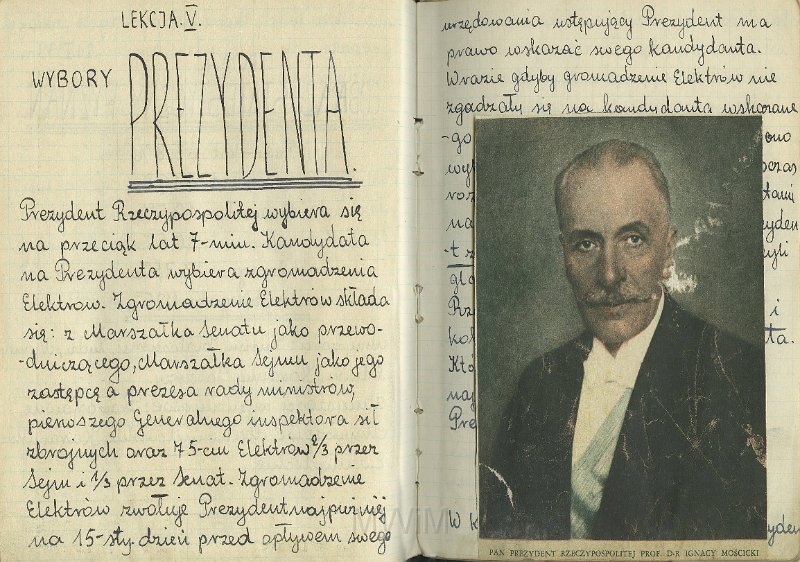 LEKCJA. V.
WYBORY
PREZYDENTA.
Prezydent Rzeczypospolitej wybiera się
na przeciąk lat 7-miu. Kandydata
na Prezydenta wybiera zgromadzenia
Elektrów. Zgromadzenie Elektrów składa
się: z Marszałka Senatu jako przewo-
-dniczącego, Marszałka Sejmu jako jego
zastępcę a prezesa rady ministrów,
pierwszego Generalnego inspektora sił
zbrojnych oraz 75-ciu Elektrów 2/3 przez
Sejm i 1/3 przez Senat. Zgromadzenie
Elektrów zwołuje Prezydent najpurniej
na 15-sty. dzień przed opływem swego
urzędowania ustępujący Prezydent ma
prawo wskazać swego kandydanta.
W razie gdyby gromadzenie Elektrów nie
zgadzały się na kandydanta wskazane
-go
ono
wy
czas
roz
na
-t z
gło
Prz
i
kol
ta.
Któ
naj
Pre
W k
MWM
PAN PREZYDENT RZECZYPOSPOLITEJ PROF. D-R IGNACY MOŚCICKI